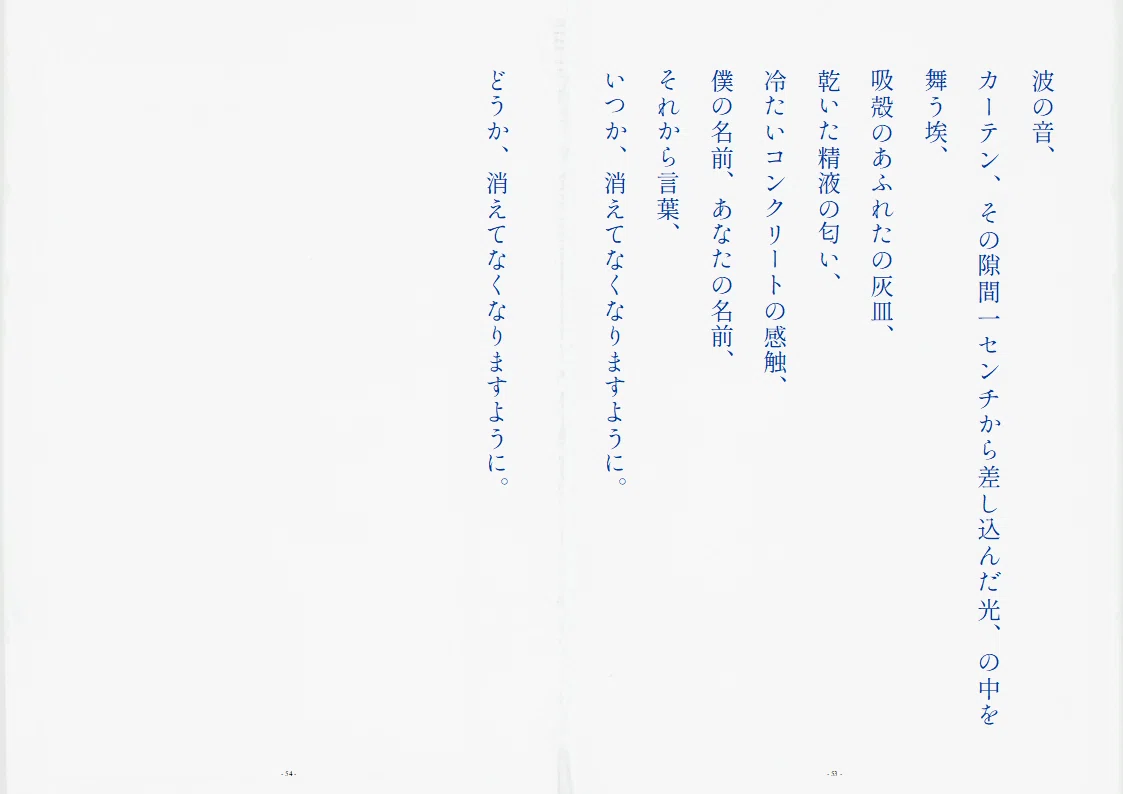 波の音、
カーテン、その隙間一センチから差し込んだ光、の中を
舞う埃、
吸殻のあふれたの灰皿、
乾いた精液の匂い、
冷たいコンクリートの感触、
僕の名前、あなたの名前、
それから言葉、
いつか、消えてなくなりますように。
- 53 -
どうか、消えてなくなりますように。
- 54 -